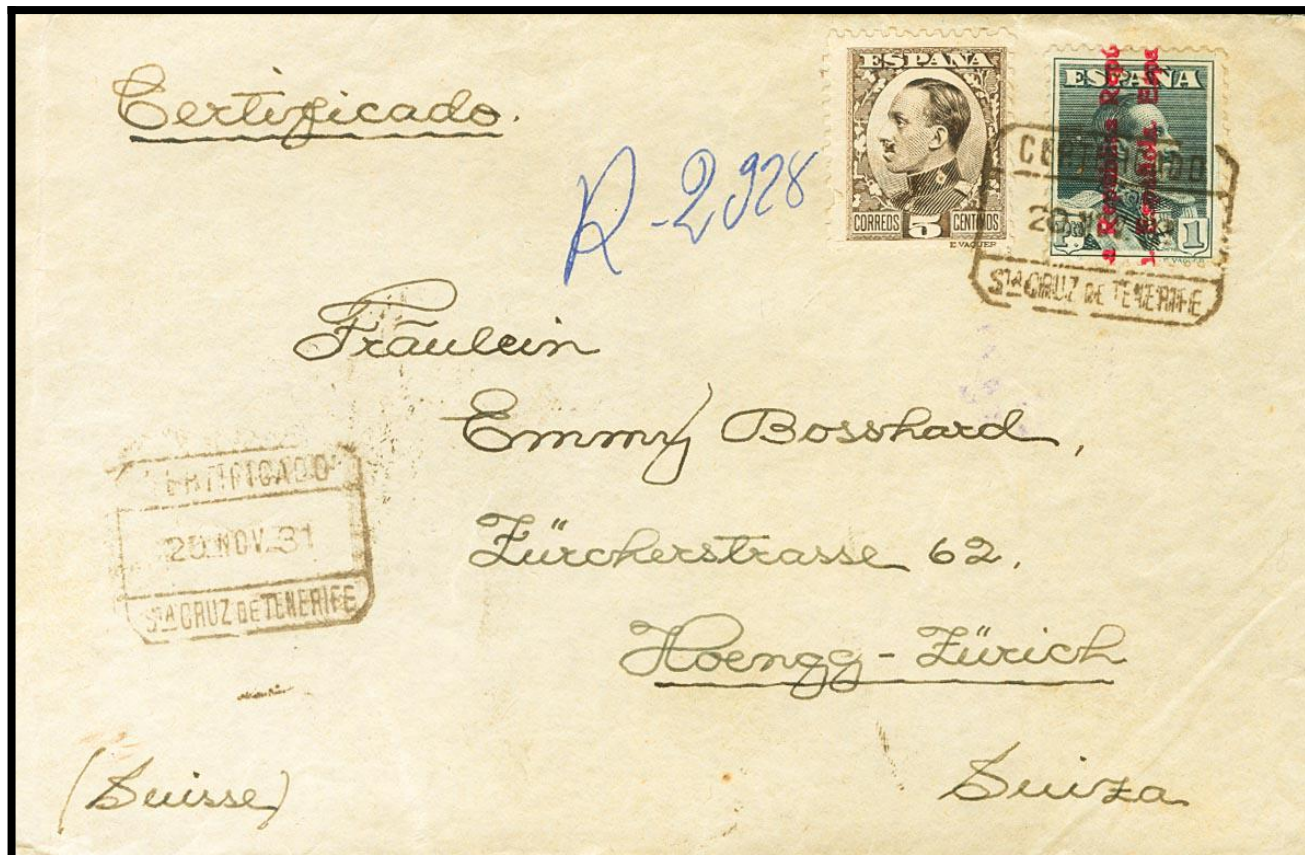 Certificado.
R-2928
ESPAÑA
CORREOS 5 CENTIMOS
E. VAQUER
ESPAÑA
a República Repú
Española. Espa
1
CERTIFICADO
20 NOV
STA CRUZ DE TENERIFE
Fräulein
Emmy Bosshard,
Zürcherstrasse 62.
Hoengg-Zürich
Suiza
(Suisse)
ERTIFICADO
20 NOV. 31
STA CRUZ DE TENERIFE